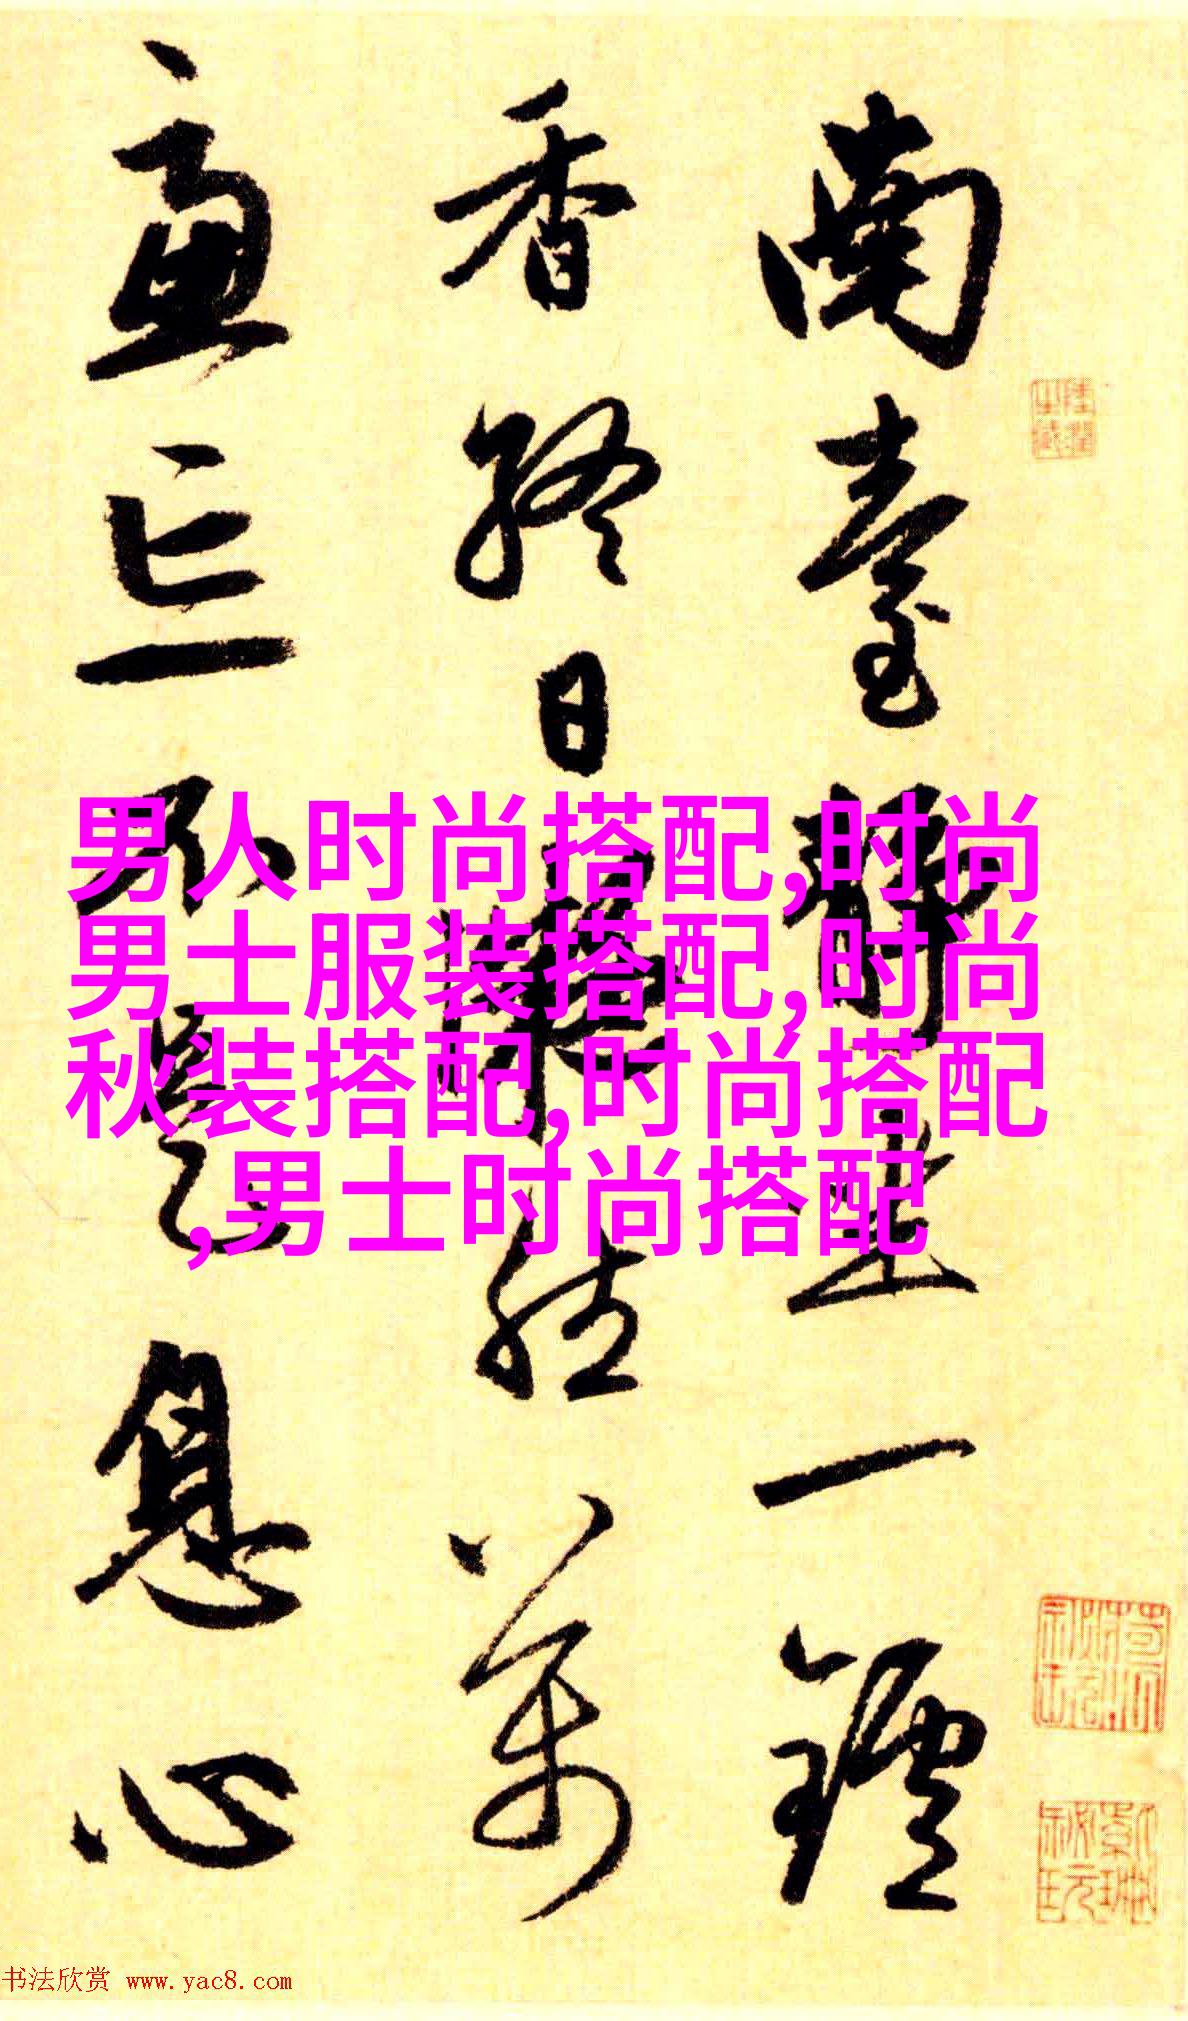 南臺靜坐一鑪
香終日凝然萬
慮亡不是息心
男人时尚搭配,时尚
男士服装搭配,时尚
秋装搭配,时尚搭配
,男士时尚搭配
书法欣赏 www.yac8.com